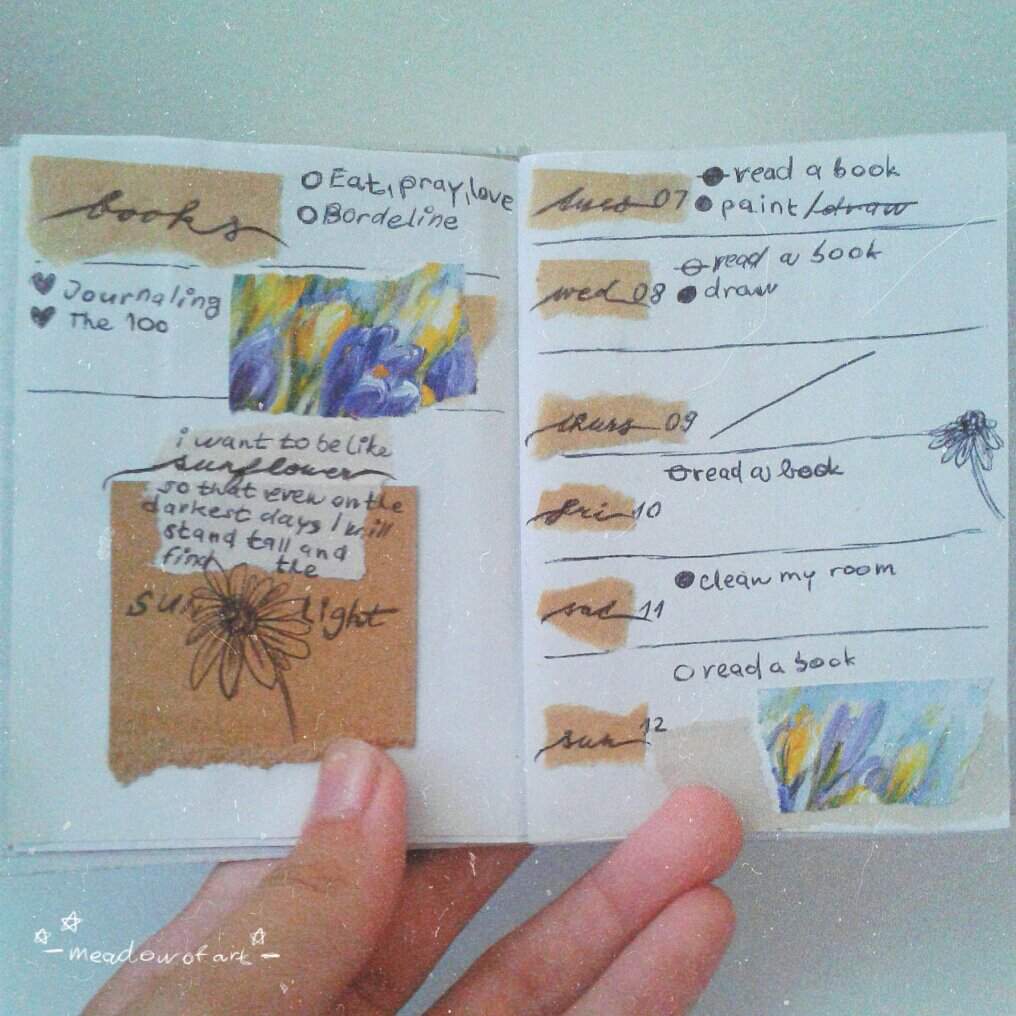 books
Eat, pray, love
Bordeline
Journaling
The 100
i want to be like
sunflower
so that even on the
darkest days I will
stand tall and
find the
sun light
tues 07
read a book
paint/draw
wed 08
read a book
draw
thurs 09
read a book
fri 10
clean my room
sad 11
read a book
sun 12
-meadowofart-